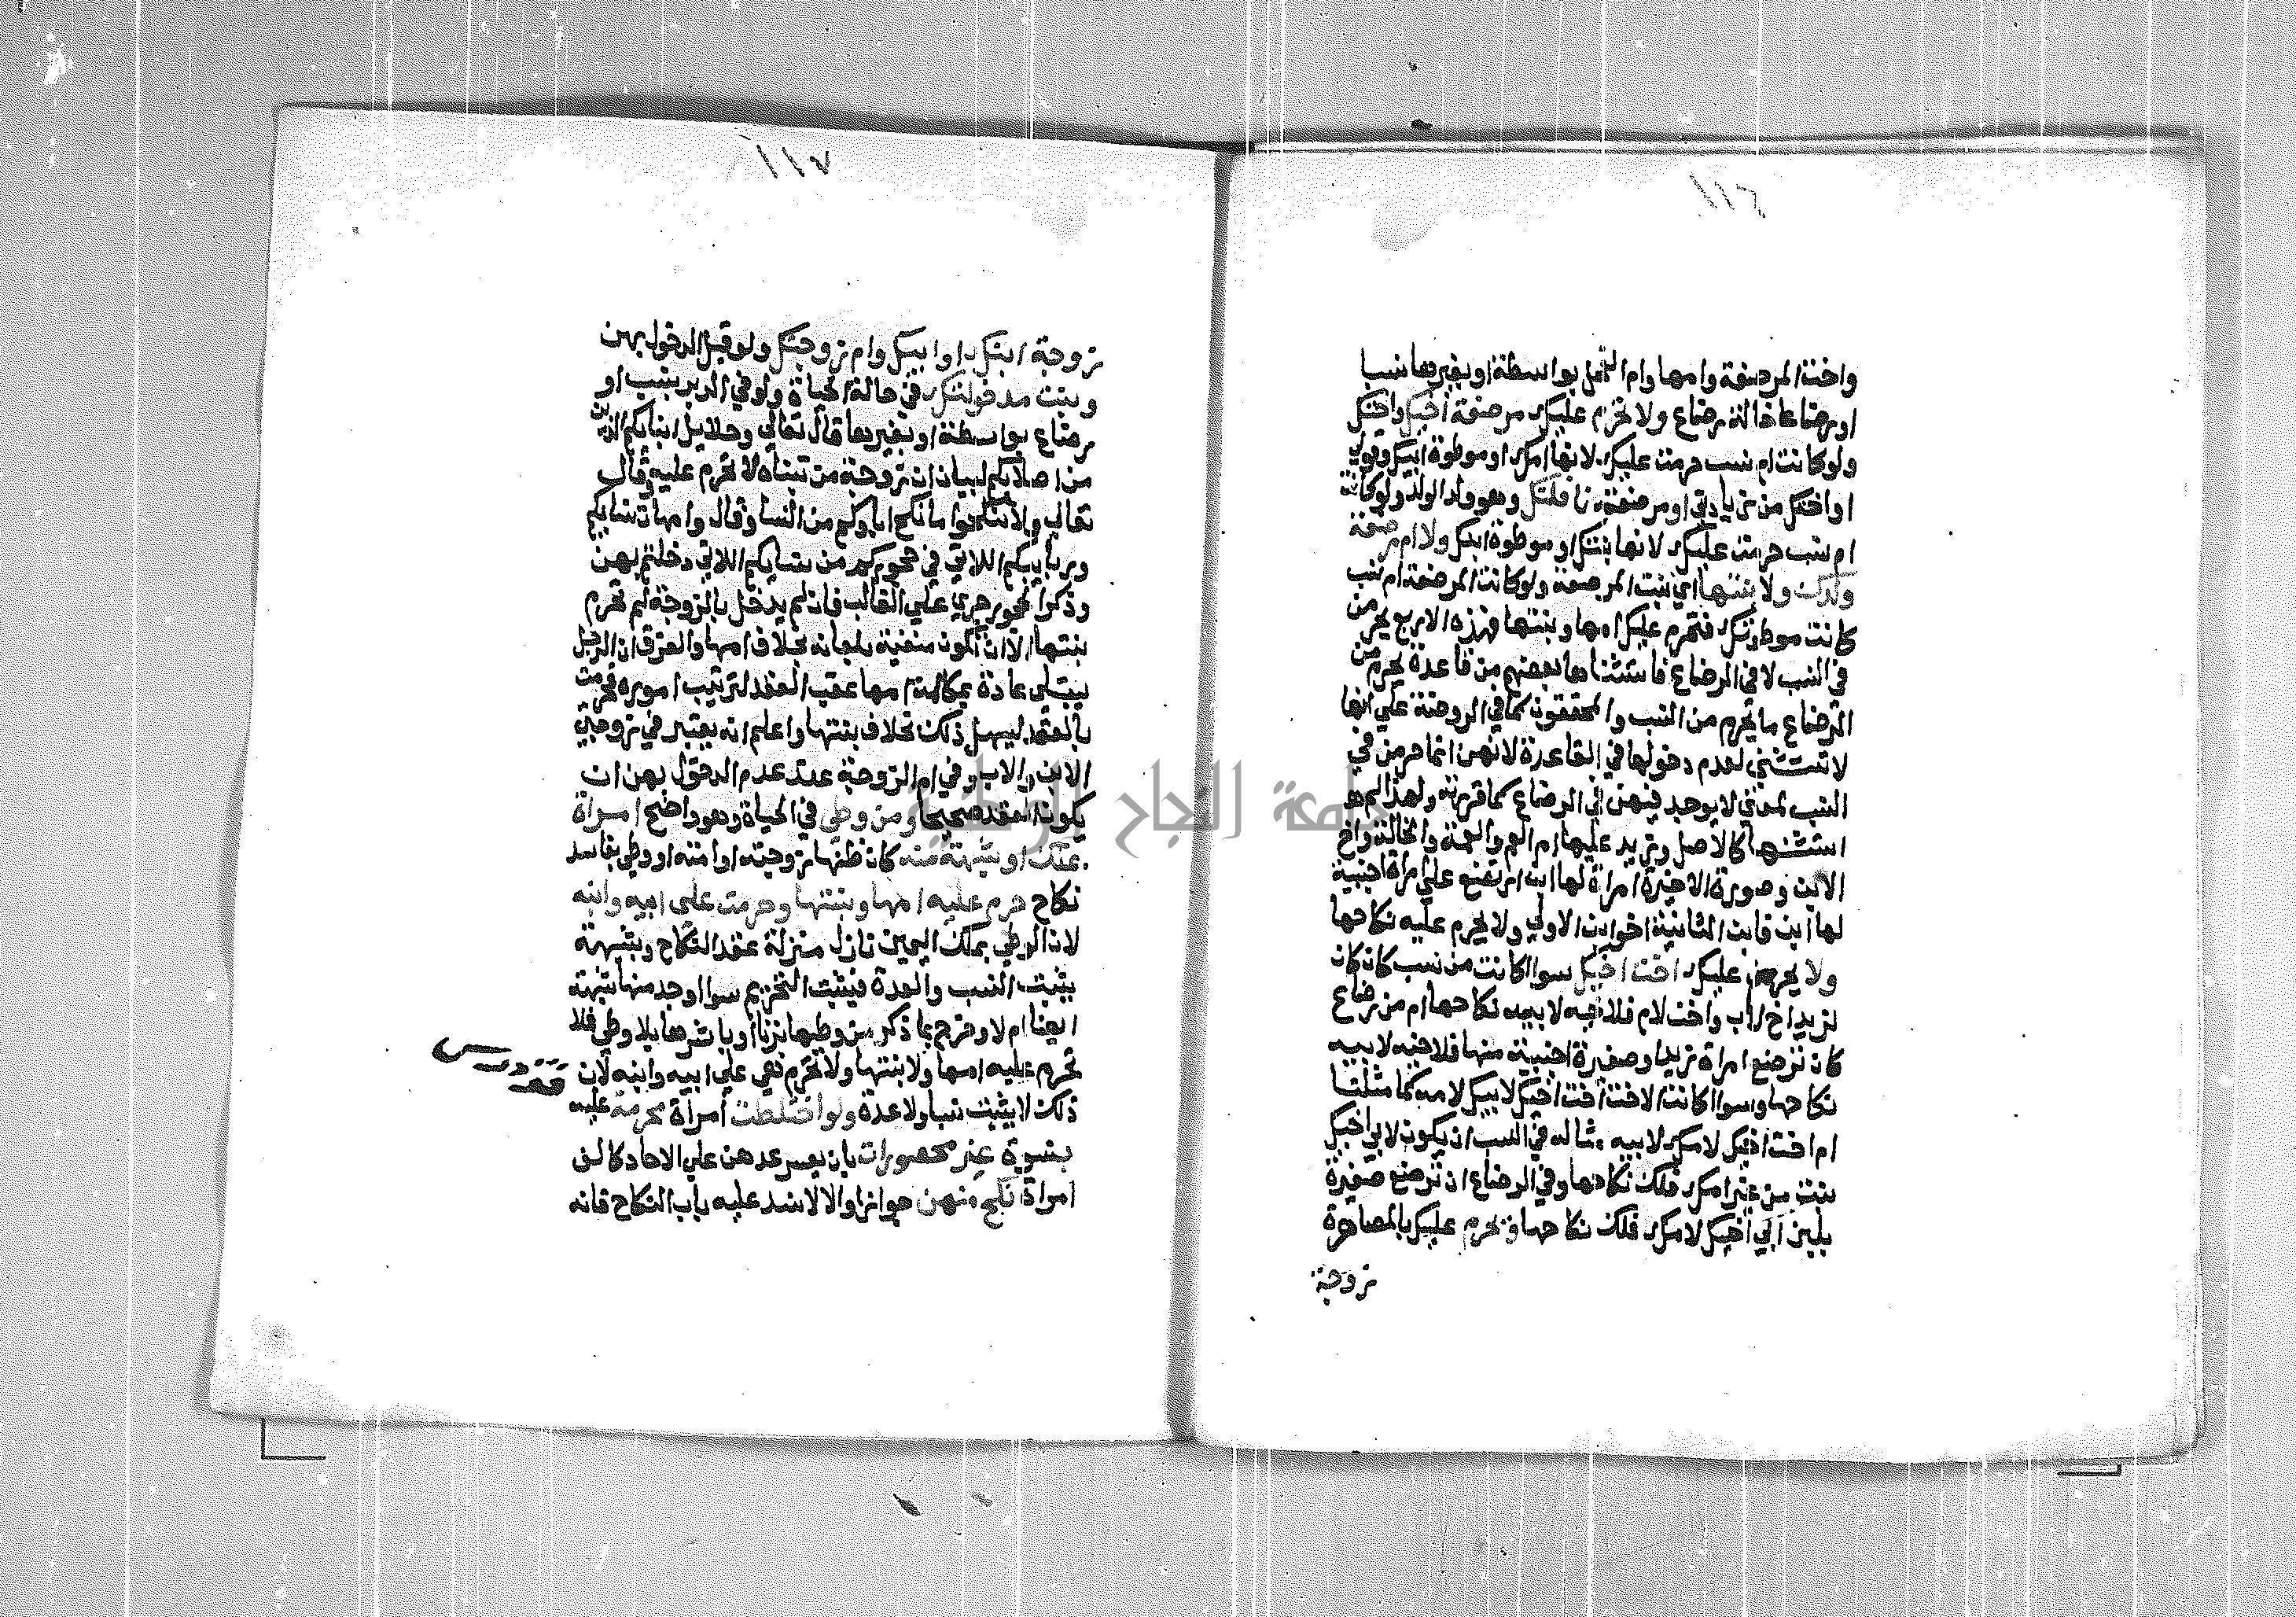 ١١٦
واخت المرضعة وامها وام الفحل بواسطة او بغيرها نسب
او رضاعا خالة رضاع ولا تحرم عليك مرضعة اخيك واختك
ولو كانت ام نسب حرمت عليك لانها امك او موطوة ابيك وقولي
او اختك من زيادتي او مرضعة نافلتك وهو ولد الولد ولو كانت
ام نسب حرمت عليك لانها بنتك او موطوة ابنك ولا ام مرضعة
ولدك ولا بنتها اي بنت المرضعة ولو كانت المرضعة ام نسب
كانت موطوتك فتحرم عليك امها وبنتها فهذه الاربع يحرمن
في النسب لا في الرضاع فاستثناها بعضهم من قاعدة يحرم من
الرضاع ما يحرم من النسب والمحققون كما في الروضة علي انها
لا تستثني لعدم دخولها في القاعدة لانهن انما حرمن في
النسب لمعني لا يوجد فيهن في الرضاع كما قررته ولهذا لم
استثنها كالاصل وتزيد عليها ام العم والعمة والخالة واخ
الابن وصورة الاخيرة امراة لها ابن ارتضع علي امراة اجنبية
لها ابن فابن الثانية اخو ابن الاولي ولا يحرم عليه نكاحها
ولا يحرم عليك اخت اخيك سوا كانت من نسب كان كان
لزيد اخ لاب واخت لام فلاخيه لابيه نكاحها ام من رضاع
كان ترضع امراة زيدا وصغيرة اجنبية منها فلاخيه لابيه
نكاحها وسوا كانت الاخت اخت اخيك لابيك لامه كما مثلنا
ام اخت اخيك لامك لابيه مثاله في النسب ان يكون لابي اخيك
بنت من غير امك فلك نكاحها وفي الرضاع ان ترضع صغيرة
بلبن ابي اخيك لامك فلك نكاحها وتحرم عليك بالمصاهرة
زوجة
١١٧
زوجة ابنك او ابيك وام زوجتك ولو قبل الدخول بهن
وبنت مدخولتك في حالة الحياة ولو في الدبر بنسب او
رضاع بواسطة او بغيرها قال تعالي وحلايل ابنايكم الذين
من اصلابكم لبيان ان زوجة من تبناه لا تحرم عليه وقال
تعالي ولا تنكحوا ما نكح اباوكم من النسا وقال وامهات نسايكم
وربايبكم اللاتي في حجوركم من نسايكم اللاتي دخلتم بهن
وذكر الحجور جري علي الغالب فان لم يدخل بالزوجة لم تحرم
بنتها الا ان تكون منفية بلعانه بخلاف امها والفرق ان الرجل
يبتلي عادة بمكالمة امها عقب العقد لترتيب اموره فحرمت
بالعقد ليسهل ذلك بخلاف بنتها واعلم انه يعتبر في زوجتي
الابن والاب وفي ام الزوجة عند عدم الدخول بهن ان
يكون العقد صحيحا ومن وطي في الحياة وهو واضح امراة
بملك او بشبهة منه كان ظنها زوجته او امته او وطي بفاسد
نكاح حرم عليه امها وبنتها وحرمت علي ابيه وابنه
لان الوطي بملك اليمين نازل منزلة عقد النكاح وبشبهة
يثبت النسب والعدة فيثبت التحريم سوا اوجد منها شبهة
ايضا ام لا وخرج بما ذكر من وطيها بزنا او باشرها بلا وطي فلا
تحرم عليه امها ولا بنتها ولا تحرم هي علي ابيه وابنه لان
ذلك لا يثبت نسبا ولا عدة ولو اختلطت امراة محرمة عليه
بنسوة غير محصورات بان يعسر عدهن علي الاحاد كالف
امراة نكح منهن جوازا والا لانسد عليه باب النكاح فانه
جامعة النجاح الوطنية